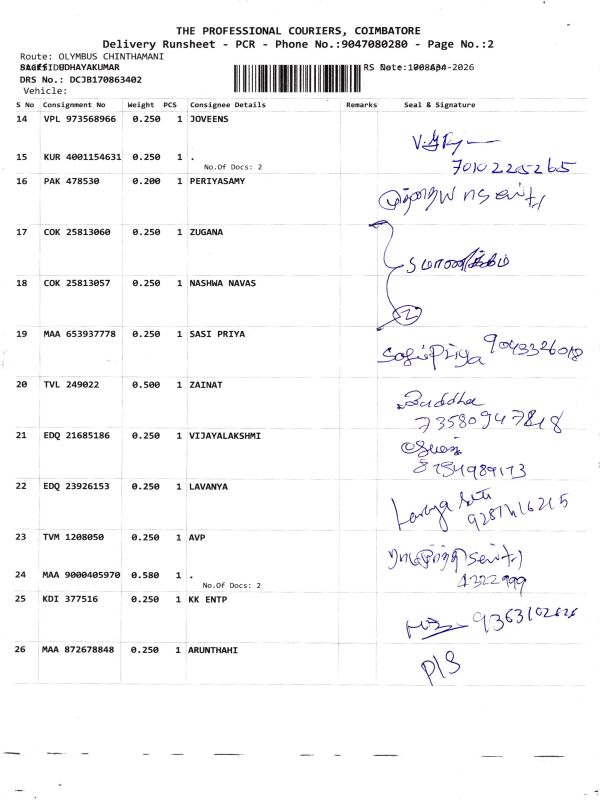 THE PROFESSIONAL COURIERS, COIMBATORE
Delivery Runsheet - PCR - Phone No.:9047080280 - Page No.:2
Route: OLYMBUS CHINTHAMANI
UDHAYAKUMAR
DRS No.: DCJB170863402
Vehicle:
S No Consignment No Weight PCS Consignee Details Remarks Seal & Signature
14 VPL 973568966 0.250 1 JOVEENS
15 KUR 4001154631 0.250 1 .
No.Of Docs: 2
7010225265
16 PAK 478530 0.200 1 PERIYASAMY
17 COK 25813060 0.250 1 ZUGANA
18 COK 25813057 0.250 1 NASHWA NAVAS
2
19 MAA 653937778 0.250 1 SASI PRIYA
SasiPriya 9043326018
20 TVL 249022 0.500 1 ZAINAT
Buddha
7358094 7818
21 EDQ 21685186 0.250 1 VIJAYALAKSHMI
22 EDQ 23926153 0.250 1 LAVANYA
23 TVM 1208050 0.250 1 AVP
24 MAA 9000405970 0.580 1 .
No.Of Docs: 2
4322999
25 KDI 377516 0.250 1 KK ENTP
26 MAA 872678848 0.250 1 ARUNTHAHI
P/S